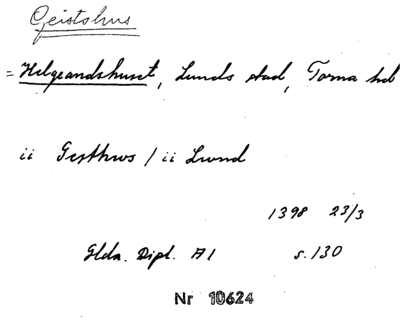 Geistshus
= Helgeandshuset, Lunds stad, Torna hd
ii Gesthws / ii Lwnd
1398 23/3
Glda. Dipl. A1 s. 130
Nr 10624